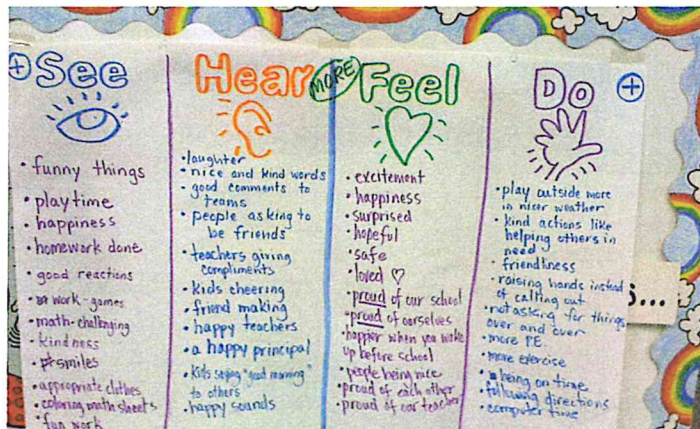 See
• funny things
• playtime
• happiness
• homework done
• good reactions
• work-games
• math-challenging
• kindness
• smiles
• appropriate clothes
• coloring math sheets
• fun work
Hear
• laughter
• nice and kind words
• good comments to
teams
• people asking to
be friends
• teachers giving
compliments
• kids cheering
• friend making
• happy teachers
• a happy principal
• kids saying "good morning"
to others
• happy sounds
MORE
Feel
• excitement
• happiness
• surprised
• hopeful
• safe
• loved ♡
• proud of our school
• proud of ourselves
• happier when you wake
up before school
• people being nice
• proud of each other
• proud of our teacher
Do
• play outside more
in nicer weather
• kind actions like
helping others in
need
• friendliness
• raising hands instead
of calling out
• not asking for things
over and over
• more P.E.
• more exercise
• being on time
• following directions
• computer time
s...